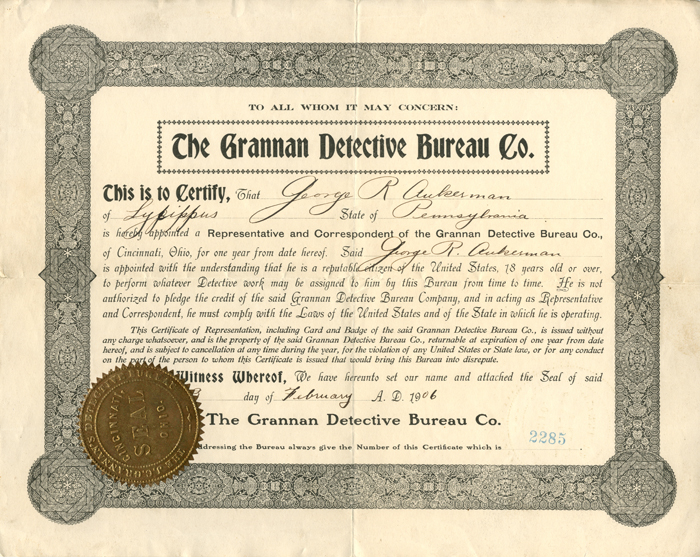 TO ALL WHOM IT MAY CONCERN:
The Grannan Detective Bureau Co.
This is to Certify, That George R Aukerman
of Lycippus State of Pennsylvania
is hereby appointed a Representative and Correspondent of the Grannan Detective Bureau Co.,
of Cincinnati, Ohio, for one year from date hereof. Said George R. Aukerman
is appointed with the understanding that he is a reputable citizen of the United States, 18 years old or over,
to perform whatever Detective work may be assigned to him by this Bureau from time to time. He is not
authorized to pledge the credit of the said Grannan Detective Bureau Company, and in acting as Representative
and Correspondent, he must comply with the Laws of the United States and of the State in which he is operating.
This Certificate of Representation, including Card and Badge of the said Grannan Detective Bureau Co., is issued without
any charge whatsoever, and is the property of the said Grannan Detective Bureau Co., returnable at expiration of one year from date
hereof, and is subject to cancellation at any time during the year, for the violation of any United States or State law, or for any conduct
on the part of the person to whom this Certificate is issued that would bring this Bureau into disrepute.
Witness Whereof, We have hereunto set our name and attached the Seal of said
day of February A. D. 1906
The Grannan Detective Bureau Co.
addressing the Bureau always give the Number of this Certificate which is 2285
CINCINNATI, OHIO.
SEAL